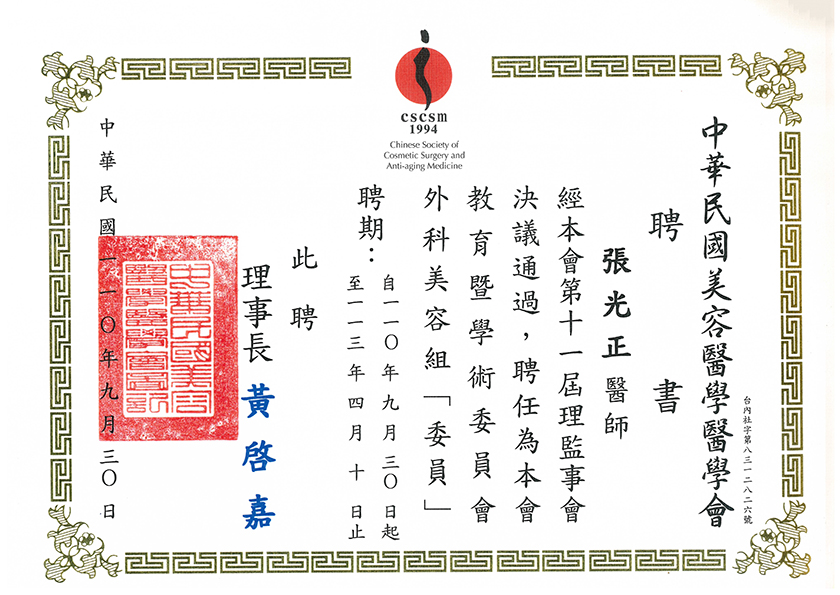 cscsm
1994
Chinese Society of
Cosmetic Surgery and
Anti-aging Medicine
中華民國美容醫學醫學會
台內社字第八三一二八二六號
聘書
張光正醫師
經本會第十一屆理監事會
決議通過，聘任為本會
教育暨學術委員會
外科美容組「委員」
聘期：
自一一〇年九月三〇日起
至一一三年四月十日止
此聘
理事長黃啓嘉
中華民國一一〇年九月三〇日
中華民國美容
醫學醫學會圖記